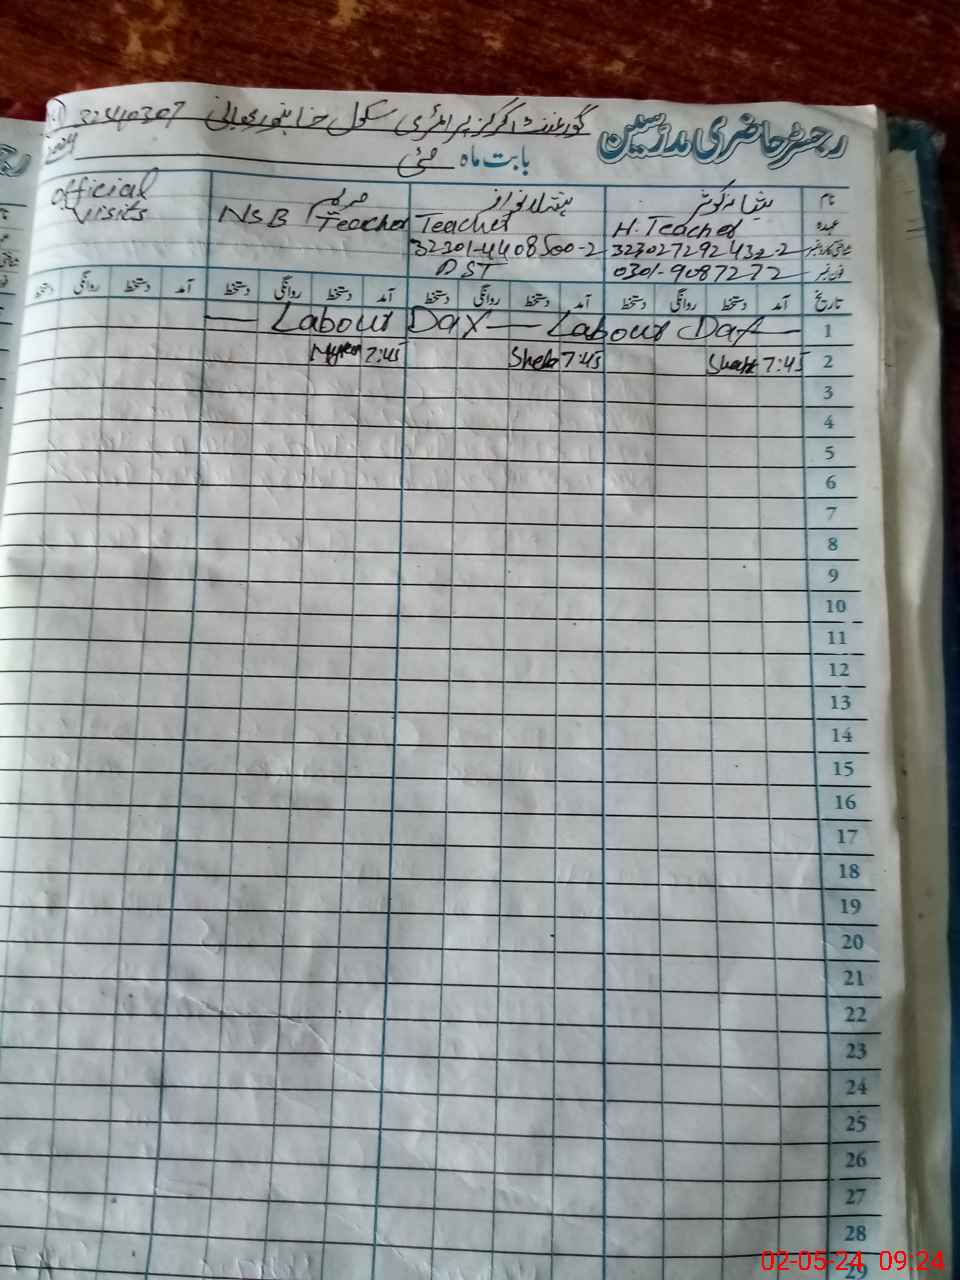 رجسٹر حاضری مدرسین گورنمنٹ گرلز پرائمری سکول 32410307
بابت ماہ مئی
نام مریم
official visits
عہدہ H. Teacher Teacher NSB Teacher
323027292432-2 32301-4408500-2
فون نمبر 0301-9087272 PST
تاریخ آمد دستخط روانگی دستخط آمد دستخط روانگی دستخط آمد دستخط روانگی دستخط آمد دستخط روانگی دستخط
1 — Labour Day — Labour Day —
2 7:45 7:45 7:45
3
4
5
6
7
8
9
10
11
12
13
14
15
16
17
18
19
20
21
22
23
24
25
26
27
28
29
02-05-24 09:24